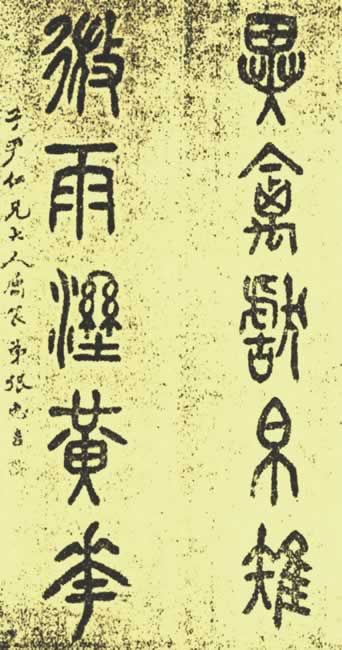 異禽帛雉
微雨溼黃華
子尹仁兄大人屬篆 弟張